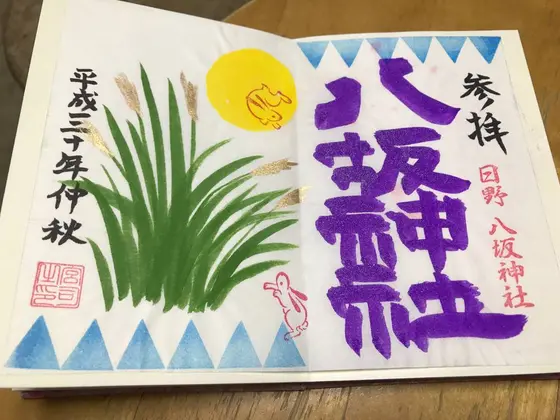 参拝
日野 八坂神社
八坂神社
平成三十年仲秋
宮司之印